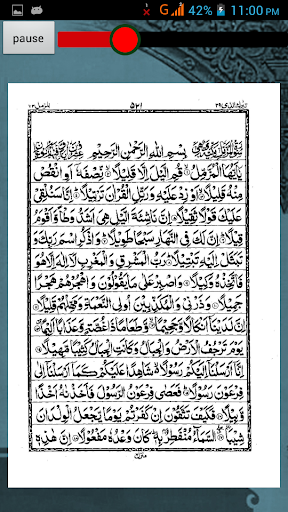 G 42% 11:00 PM
pause
۵۲۱
بِسْمِ اللهِ الرَّحْمٰنِ الرَّحِيْمِ
يٰٓاَيُّهَا الْمُزَّمِّلُ ۙ قُمِ الَّيْلَ اِلَّا قَلِيْلًا ۙ نِّصْفَهٗٓ اَوِ انْقُصْ
مِنْهُ قَلِيْلًا ۙ اَوْ زِدْ عَلَيْهِ وَرَتِّلِ الْقُرْاٰنَ تَرْتِيْلًا ؕ اِنَّا سَنُلْقِيْ
عَلَيْكَ قَوْلًا ثَقِيْلًا اِنَّ نَاشِئَةَ الَّيْلِ هِيَ اَشَدُّ وَطْاً وَّاَقْوَمُ
قِيْلًا ؕ اِنَّ لَكَ فِي النَّهَارِ سَبْحًا طَوِيْلًا ؕ وَاذْكُرِ اسْمَ رَبِّكَ وَ
تَبَتَّلْ اِلَيْهِ تَبْتِيْلًا ؕ رَبُّ الْمَشْرِقِ وَالْمَغْرِبِ لَآ اِلٰهَ اِلَّا هُوَ
فَاتَّخِذْهُ وَكِيْلًا وَاصْبِرْ عَلٰى مَا يَقُوْلُوْنَ وَاهْجُرْهُمْ هَجْرًا
جَمِيْلًا وَذَرْنِيْ وَالْمُكَذِّبِيْنَ اُولِي النَّعْمَةِ وَمَهِّلْهُمْ قَلِيْلًا
اِنَّ لَدَيْنَآ اَنْكَالًا وَّجَحِيْمًا ۙ وَّطَعَامًا ذَا غُصَّةٍ وَّعَذَابًا اَلِيْمًا
يَوْمَ تَرْجُفُ الْاَرْضُ وَالْجِبَالُ وَكَانَتِ الْجِبَالُ كَثِيْبًا مَّهِيْلًا
اِنَّآ اَرْسَلْنَآ اِلَيْكُمْ رَسُوْلًا ۙ شَاهِدًا عَلَيْكُمْ كَمَآ اَرْسَلْنَآ اِلٰى
فِرْعَوْنَ رَسُوْلًا ؕ فَعَصٰى فِرْعَوْنُ الرَّسُوْلَ فَاَخَذْنٰهُ اَخْذًا
وَّبِيْلًا فَكَيْفَ تَتَّقُوْنَ اِنْ كَفَرْتُمْ يَوْمًا يَّجْعَلُ الْوِلْدَانَ
شِيْبًا ۙ السَّمَآءُ مُنْفَطِرٌۢ بِهٖ ؕ كَانَ وَعْدُهٗ مَفْعُوْلًا اِنَّ هٰذِهٖ